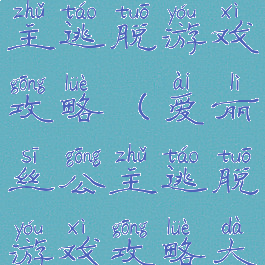 zhǔ táo tuō yóu xì
主逃脱游戏
gōng lüè ài lì
攻略(爱丽
sī gōng zhǔ táo tuō
丝公主逃脱
yóu xì gōng lüè dà
游戏攻略大